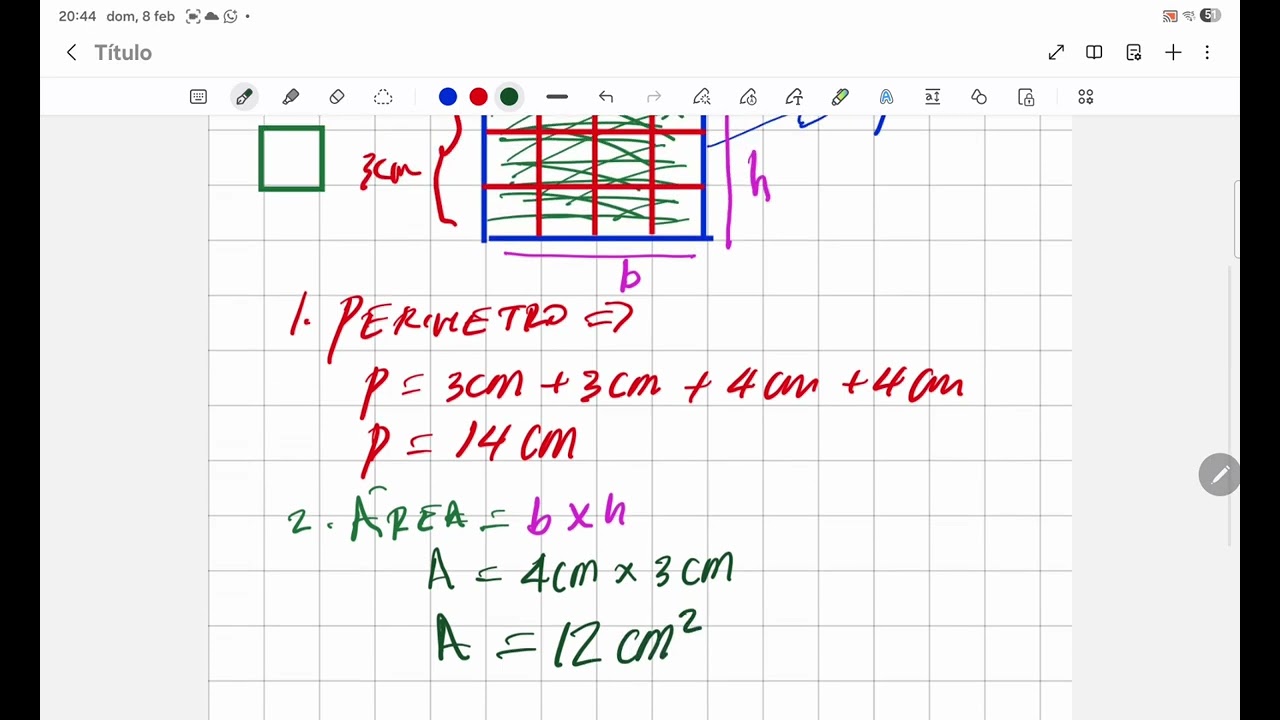 20:44 dom, 8 feb 51
Título
3cm
h
b
1. PERIMETRO =>
P = 3cm + 3cm + 4cm + 4cm
P = 14 cm
2. ÁREA = b x h
A = 4cm x 3cm
A = 12 cm²